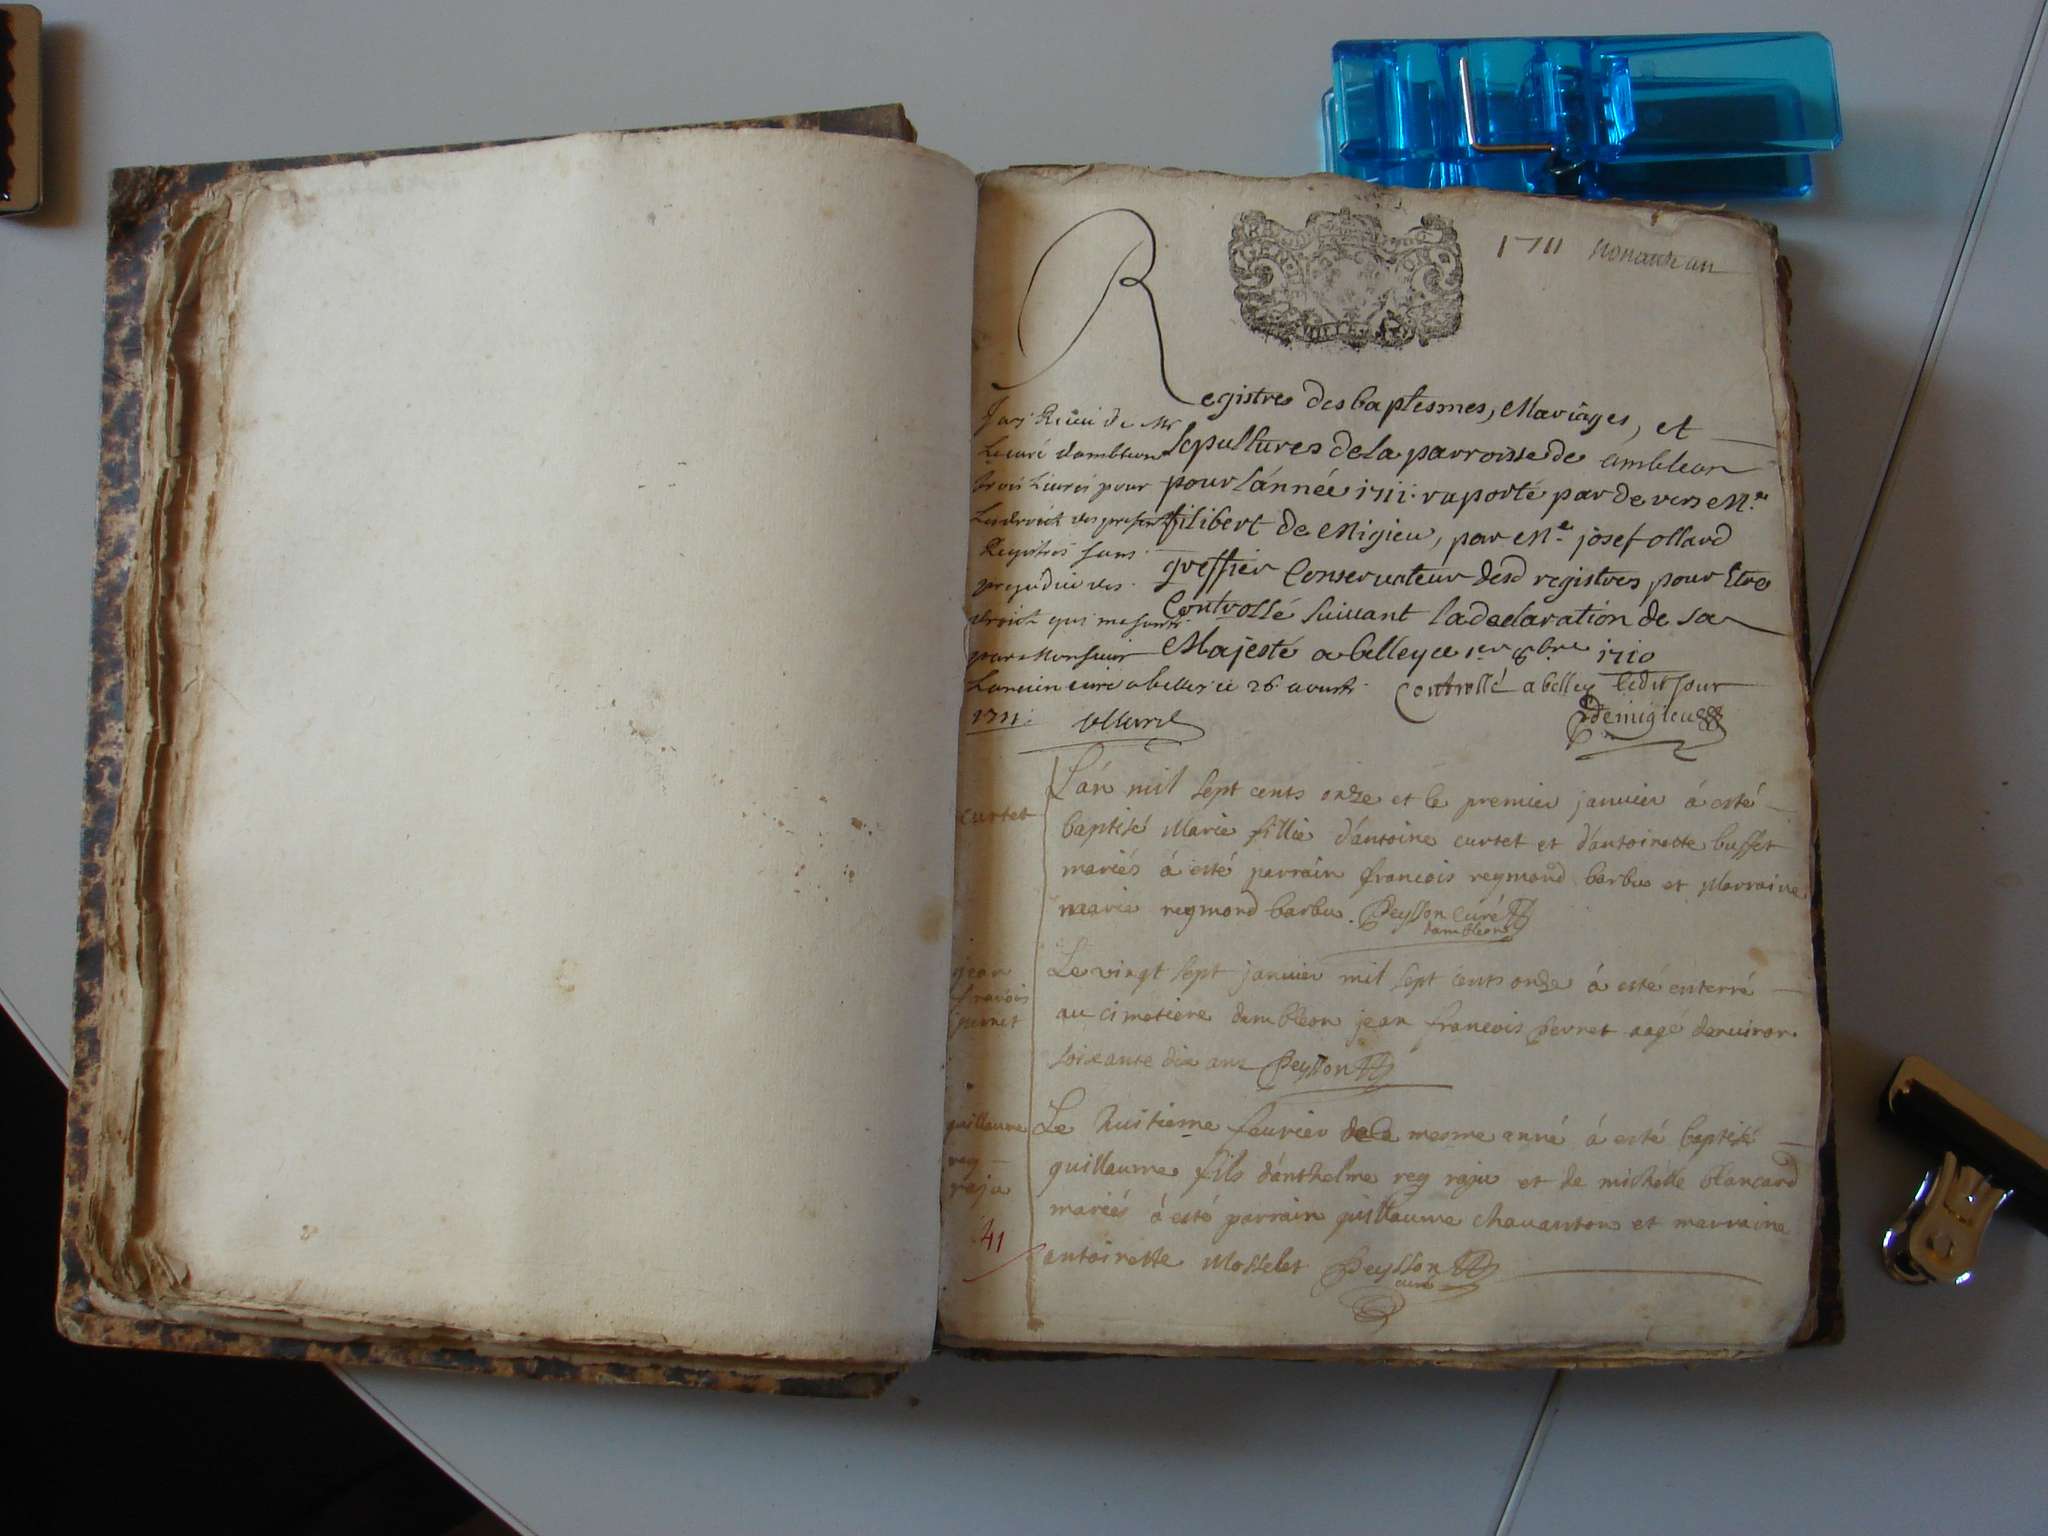 1711 nonante un
Registre des baptesmes, Mariages, et
sepultures de la parroisse de ambleon
pour l'année 1711 raporté par devers Mre
filibert de Migieu, par Me josef ollard
greffier Conservateur desd registres pour Etre
Controllé suivant la declaration de sa
Majesté a belley ce 1er 8bre 1710
Controllé a belley ledit jour
Demigieu
Jay Receu de Mr
Le curé dambleon
trois Livres pour
Les droict des presents
Registres sans
prejudice des
droict qui me sont
par Monsieur
Lancien curé a belley ce 26 aoust
1711 ollard
curtet
L'án mil sept cents onze et le premier janvier á esté
baptisé Marie fillie d'ántoine curtet et d'antoinette buffet
mariés á esté parrain francois reymond barbu et Marraine
marie reymond barbu. Peysson Curé
dambleon
jean
francois
perret
Le vingt sept janvier mil sept cents onze á esté enterré
au cimetiere dambleon jean francois perret aagé denviron
soixante dix ans Peysson
guillaume
rey
raju
Le huitieme fevrier de la mesme anné á esté baptisé
guillaume fils d'ánthelme rey raju et de michelle blancard
mariés á esté parrain guillaume chavanton et marraine
antoinette Mosselet Peysson
curé
41